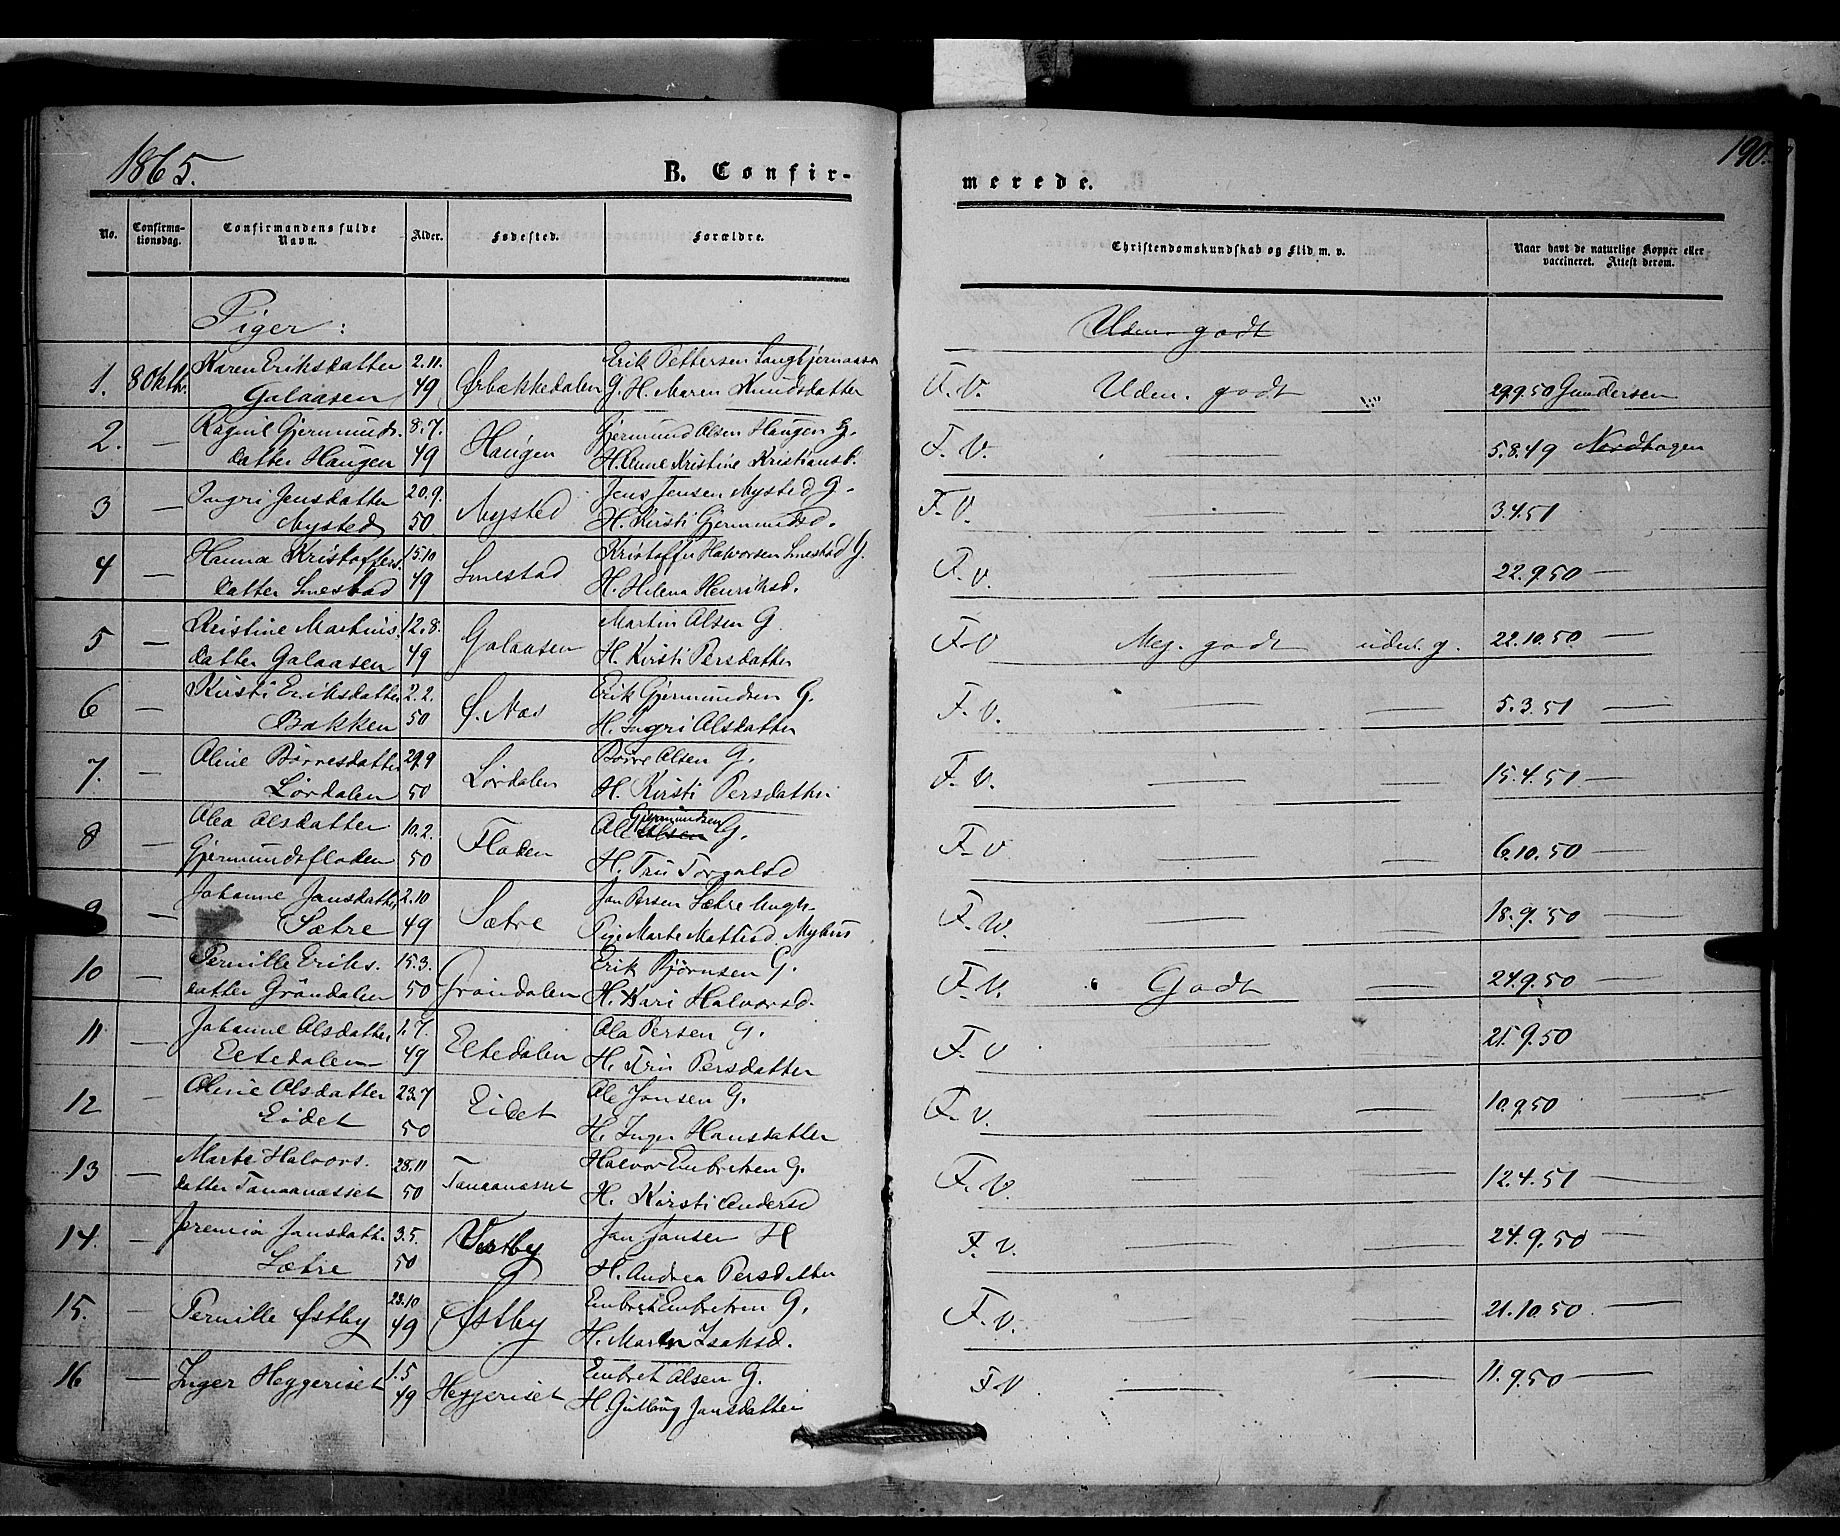 1865.
B. Confir-
merede.
190.
No.
Confirma-
tionsdag.
Confirmandens fulde
Navn.
Alder.
Fødested.
Forældre.
Christendomskundskab og Flid m. v.
Naar havt de naturlige Kopper eller
vaccineret. Attest derom.
Piger:
Uden. godt
Karen Eriksdatter 2.11. Erik Pettersen
1. 8 Oktbr. Galaasen 49 Ørbækkedalen G. H. Maren Knudsdatter F. V. Uden. godt 29.9.50 Gundersen
2. — Ragnil Gjermunds. 8.7. Haugen Gjermund Olsen Haugen G. F. V. — 5.8.49 Nordhagen
datter Haugen 49 H. Anne Kristine Kristiansd.
3 — Ingri Jensdatter 20.9. Nysted Jens Jensen Nysted G. F. V. — 3.4.51
Nysted 50 H. Kirsti Gjermundsd.
4 — Hanna Kristoffers. 15.10 Smestad Kristoffer Halvorsen Smestad G. F. V. — 22.9.50 —
datter Smestad 49 H. Helena Henriksd.
5 — Kristine Martins. 12.8. Galaasen Martin Olsen G. F. V Meg. godt uden. g. 22.10.50 —
datter Galaasen 49 H. Kirsti Persdatter
6 — Kirsti Eriksdatter 2.2. Ø. Nas Erik Gjermundsen G. F. V. — — 5.3.51 —
Bakken 50 H. Ingri Olsdatter
7. — Oline Børresdatter 29.9 Lørdalen Børre Olsen G. F. V. — — 15.4.51 —
Lørdalen 50 H. Kirsti Persdatter
8 — Olea Olsdatter 10.2. Floden Ole Gjermundsen G. F. V — — 6.10.50 —
Gjermundsfloden 50 H. Tru
9 — Johanne Jansdatter 2.10 Sætre Jan Persen Sætre Ungk. F. V. — 18.9.50 —
Sætre 49 Pige Marte Mattisd. Myhus
10 — Pernille Eriks. 15.3. Grøndalen Erik Bjørnsen G. F. V. Godt — 24.9.50 —
datter Grøndalen 50 H. Kari Halvorsd.
11 — Johanne Olsdatter 1.7. Eltedalen Ola Persen G. F. V — — 21.9.50
Eltedalen 49 H. Tru Persdatter
12 — Oline Olsdatter 23.7 Eidet Ole Jonsen G. F. V. — — 10.9.50 —
Eidet 50 H. Inger Hansdatter
13 — Marte Halvors. 28.11 Tanaanæsset Halvor Embretsen G. F. V. — — 12.4.51 —
datter Tanaanæsset 50 H. Kirsti Andersd
14. — Jansdatt. 3.5. Vestby Jan Jansen H F. V. — — 24.9.50 —
Sætre 50 H. Andrea Persdatter
15. — Pernille Østby 23.10 Østby Embret Embretsen G. F. V. — — 21.10.50 —
49 H. Maren Isaksd.
16 — Inger Heggeriset 1.5 Heggeriset Embret Olsen G. F. V — — 11.9.50 —
49 H. Gulbør Jansdatter